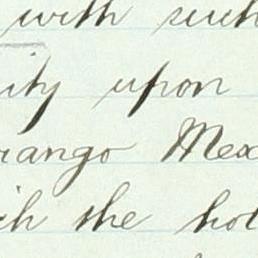 with such
ity upon
rango Mex
ch the hot